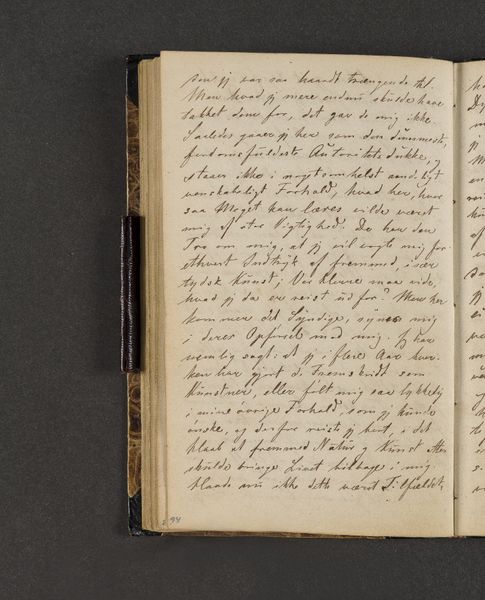 som jeg var saa haardt trængende til.
Men hvad jeg mere endnu skulde have
takket dem for, det gav de mig ikke.
Saaledes gaaer jeg her som den dummeste,
fordomsfuldeste Autoritets dukke, og
staaer ikke i noget somhelst aandeligt
venskabeligt Forhold, hvad her, hvor
saa Meget kan læres vilde været
mig af stor Vigtighed. De har den
Tro om mig, at jeg vil vogte mig for
ethvert Indtryk af fremmed, især
tydsk Kunst; maa vide,
hvad jeg da er reist ud for? Men her
kommer det Syndige, synes mig
i deres Opførsel mod mig. Jeg har
nemlig sagt: at jeg i flere Aar hver-
ken har gjort de Fremskridt som
Künstner, eller følt mig saa lykkelig
i mine øvrige Forhold, som jeg kunde
ønske, og derfor reiste jeg bort, i det
Haab at fremmed Natur og Kunst
skulde bringe Livet tilbage i mig
ikke dette været Tilfældet,
94